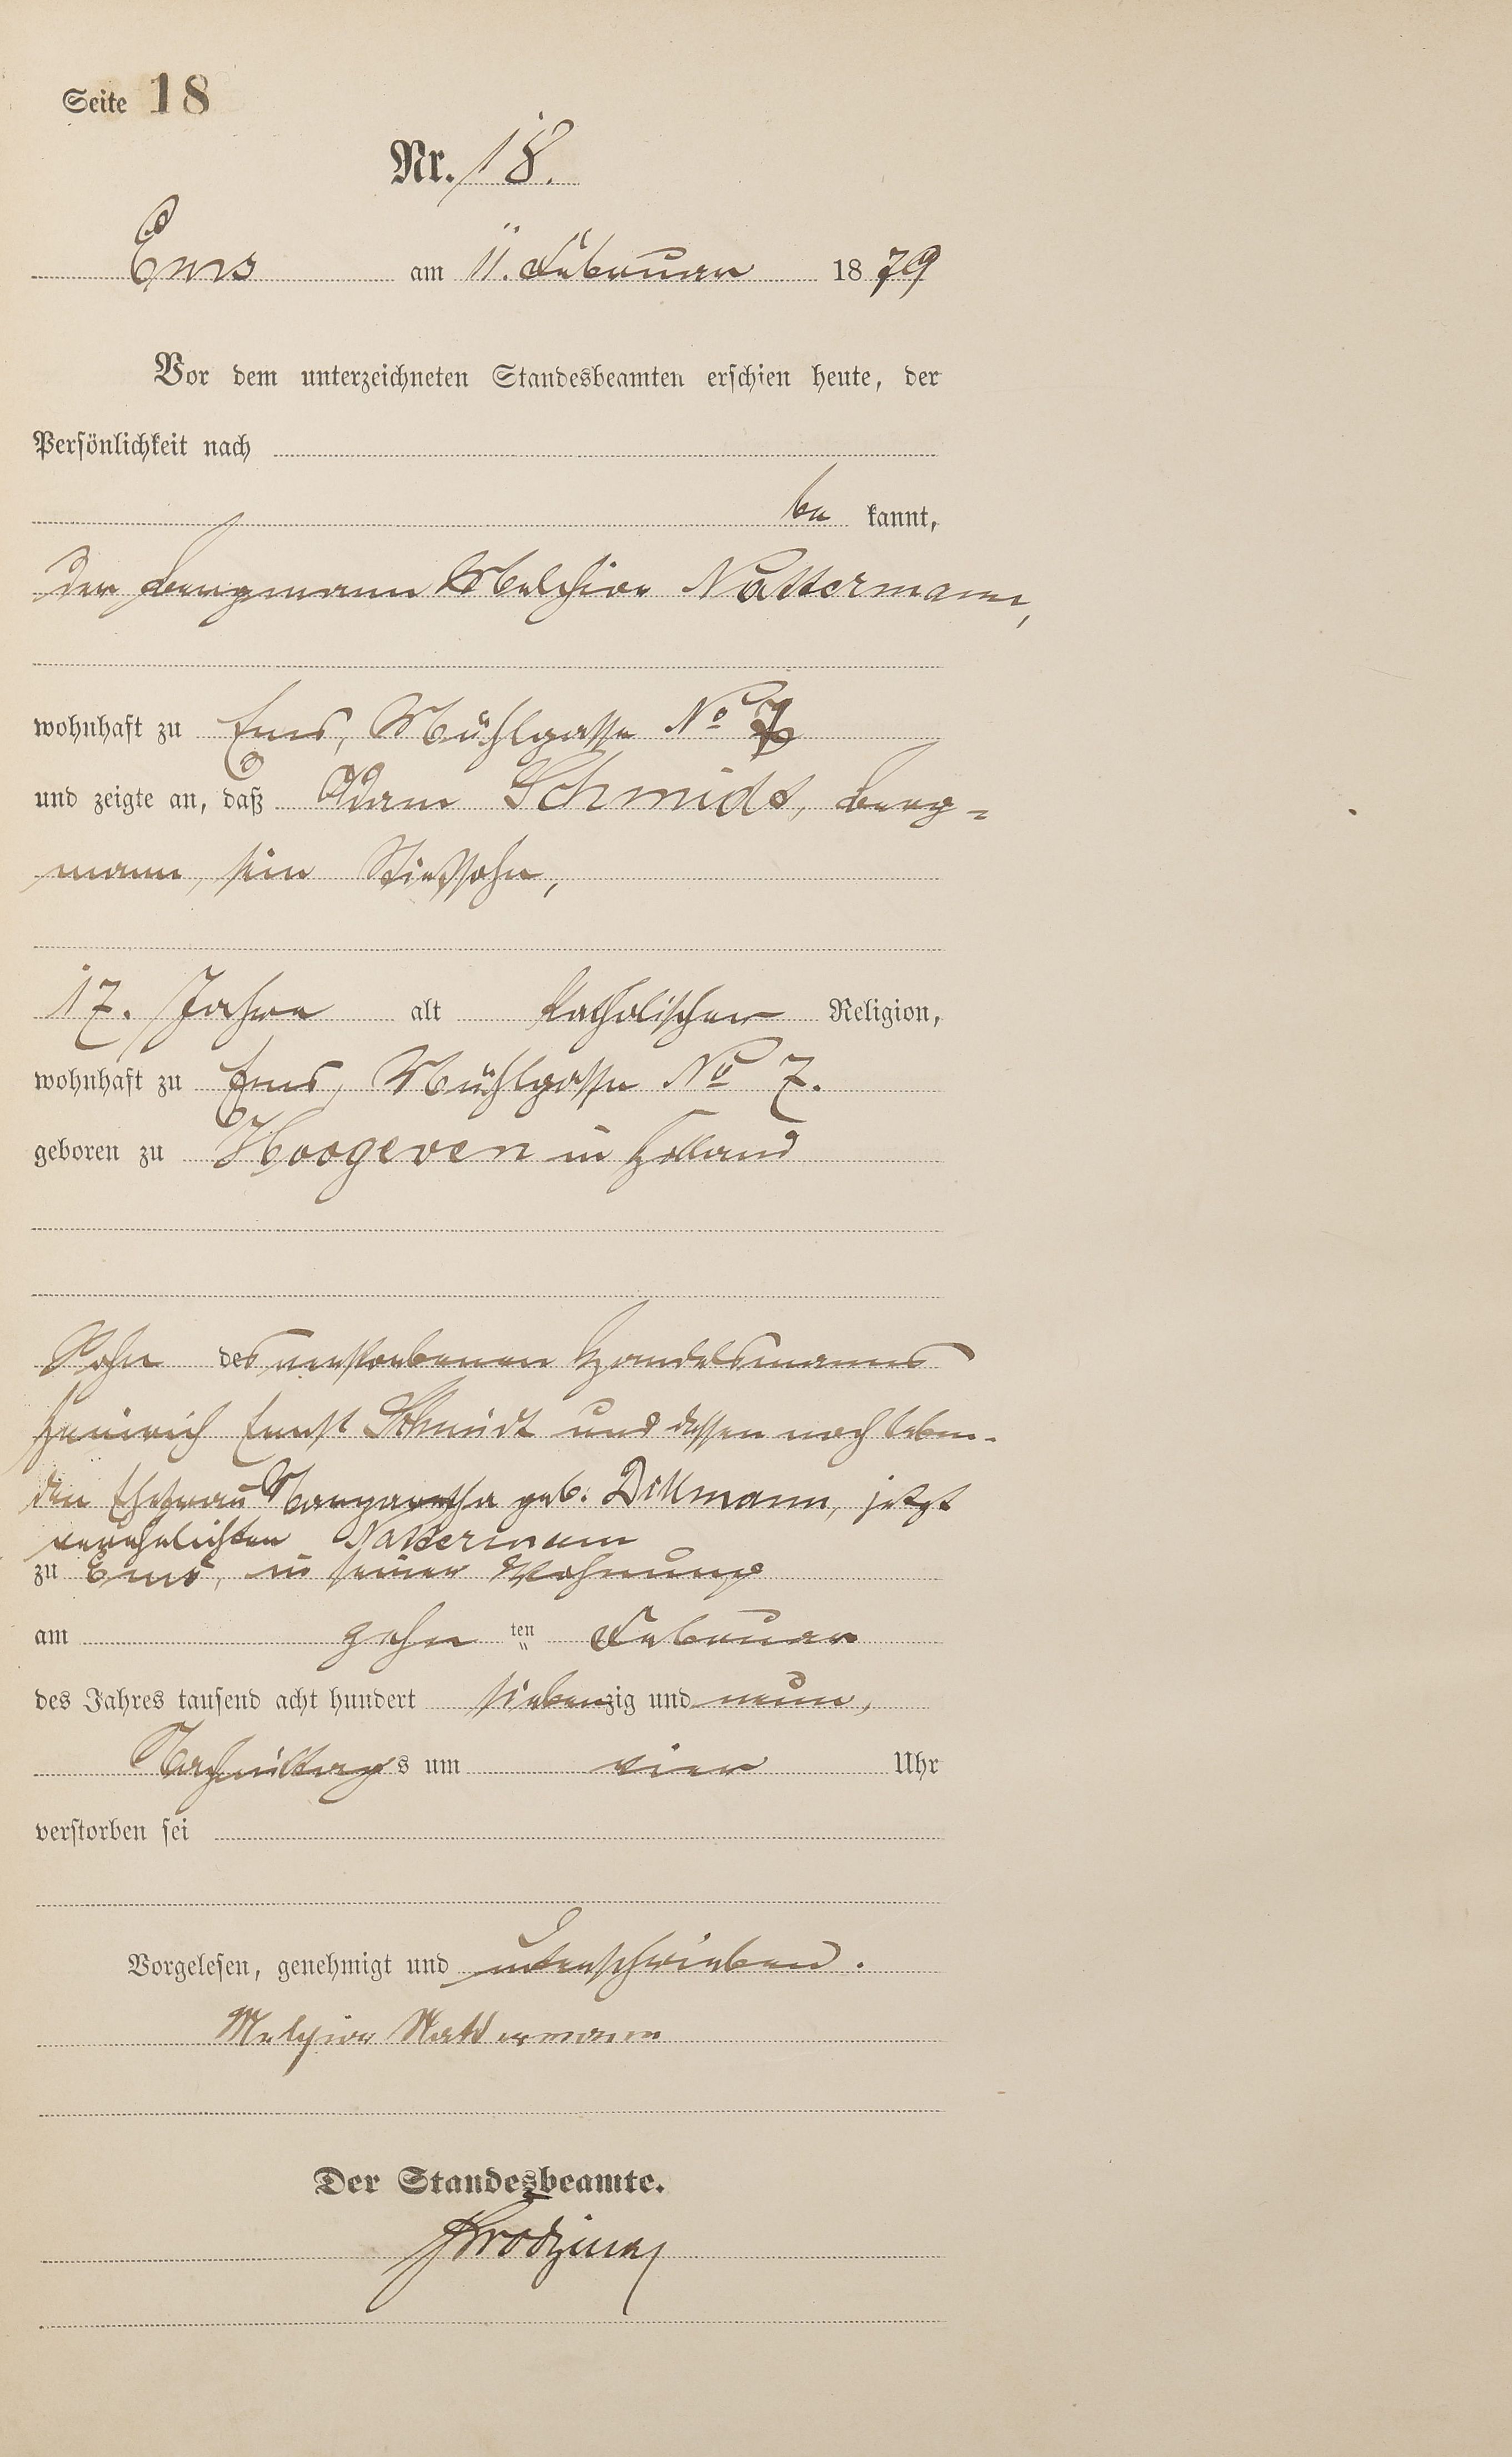 Seite 18
Nr. 18.
Ems am 11. Februar 1879
Vor dem unterzeichneten Standesbeamten erschien heute, der
Persönlichkeit nach
be kannt,
der Bergmann Melchior Nattermann,
wohnhaft zu Ems, Mühlgasse No 7
und zeigte an, daß Adam Schmidt, Berg=
mann, sein Stiefsohn,
17. Jahre alt katholischer Religion,
wohnhaft zu Ems, Mühlgasse No 7.
geboren zu Hoogeven in Holland
Sohn des verstorbenen Handelsmanns
Heinrich Ernst Schmidt und dessen noch leben-
den Ehefrau Margaretha geb. Dillmann, jetzt
verehelichten Nattermann
zu Ems, in seiner Wohnung
am zehn ten Februar
des Jahres tausend acht hundert siebenzig und neun,
Nachmittags um vier Uhr
verstorben sei
Vorgelesen, genehmigt und unterschrieben.
Melchior Nattermann
Der Standesbeamte.